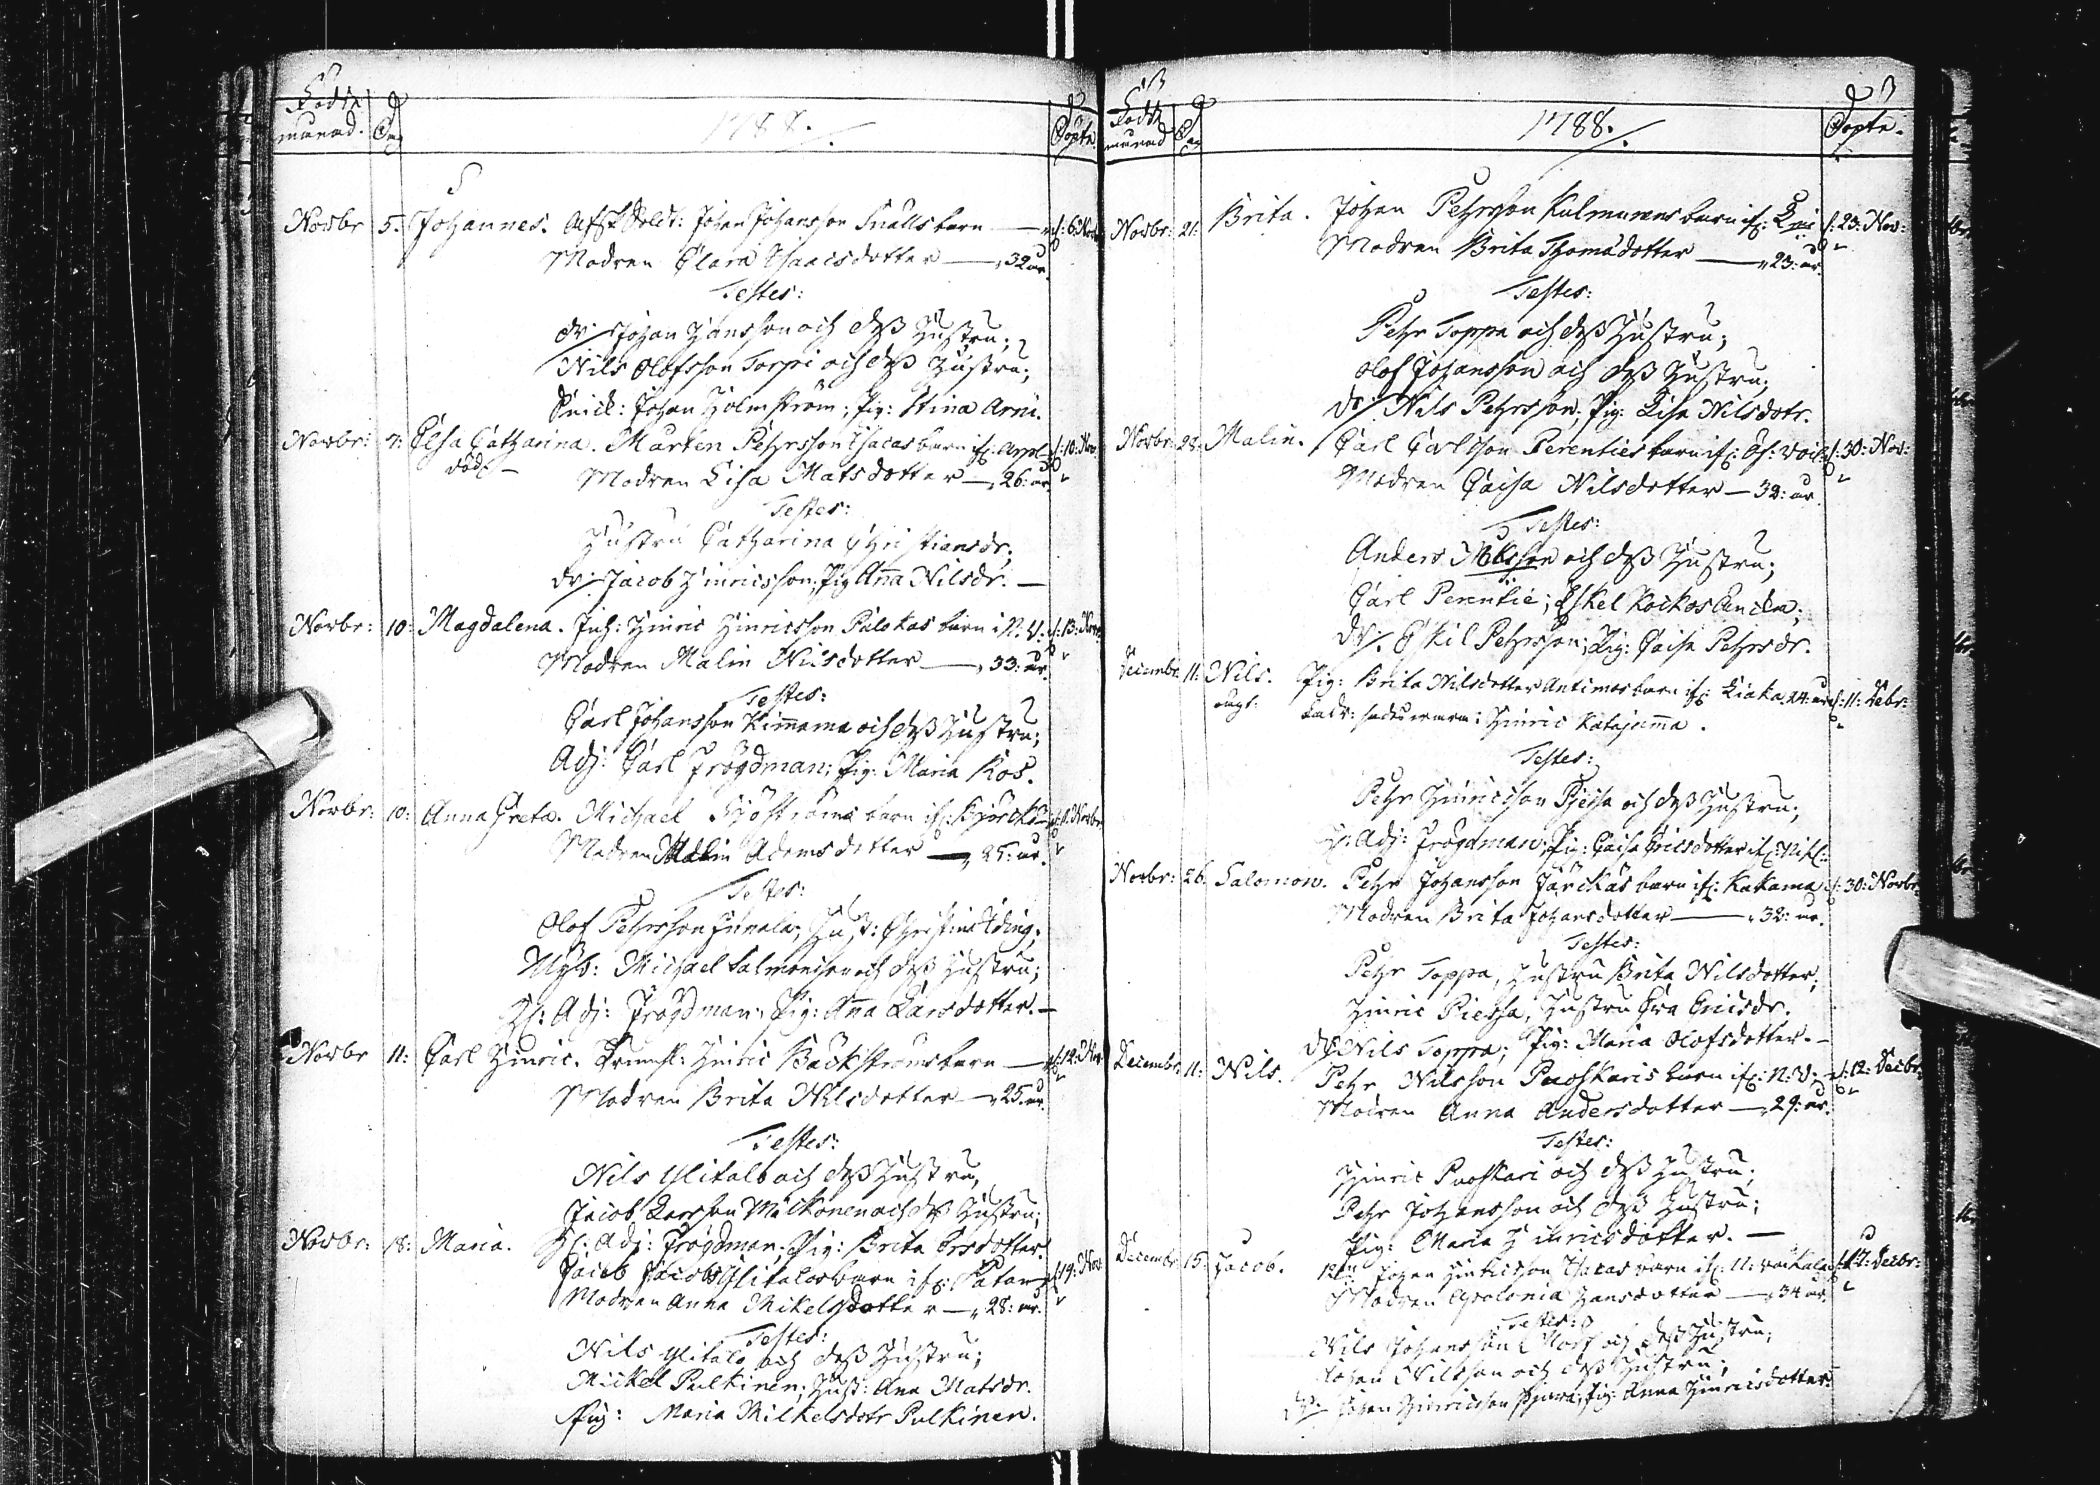 Födde
månad. Dag 1788. Döpte
Novbr 5. Johannes. Afsk. Sold: Johan Johansson Snälls barn — d: 6: Nov
Modren Clara Isaacsdotter — 32 år.
Testes:
dr: Johan Hansson och dess Hustru;
Nils Olofsson Torpi och dess Hustru;
Snick: Johan Holmström; Pig: Stina Arni.
Novbr: 7: Elsa Catharina. Mårten Pehrsson Isacas barn if: d: 10: Nov
död. Modren Lisa Matsdotter — 26: år
Testes:
Hustru Catharina Christiansdr:
dr: Jacob Hinricsson; Pig Aña Nilsdr. —
Novbr: 10: Magdalena. Inh: Hinric Hinricsson Palokas barn i N. V. d: 13: Nov
Modren Malin Nilsdotter — 33: år.
Testes:
Carl Johansson Kim̃ama och dess Hustru;
Adj: Carl Frögdman; Pig: Maria Kos.
Novbr: 10: Anna Greta. Michael Sjöströms barn if: d: Novbr
Modren Malin Adamsdotter — 25: år.
Testes:
Olof Pehrsson Hust: Christina
Nyb: Michael Salmonsson och dess Hustru;
H: Adj: Frögdman; Pig: Aña Larsdotter. —
Novbr 11: Carl Hinric. Hinric Bäckströms barn — d: 12: Nov
Modren Brita Nilsdotter — 25: år.
Testes:
Nils Ylitalo och dess Hustru,
Jacob Larsson Mulkonen och dess Hustru;
H: Adj: Frögdman; Pig: Brita Ersdotter.
Novbr: 18: Maria. Jacob Jacobs Ylitalos barn if: d: 19: Nov
Modren Anna Mikelsdotter — 28: år.
Testes:
Nils Ylitalo och dess Hustru;
Mickel Pulkinen; Hust: Ana Matsdr.
Pig: Maria Mikkelsdotr Pulkinen.
Födde
månad Dag 1788. Döpte.
Novbr: 21. Brita. Johan Pehrsson Kulmunens barn if: d: 23: Nov:
Modren Brita Thomsdotter — 23: år.
Testes:
Pehr Toppa och dess Hustru;
Olof Johansson och dess Hustru;
dr/ Nils Pehrsson; Pig: Lisa Nilsdotr.
Novbr: 28. Malin. Carl Carlsson Perenties barn if: d: 30: Nov:
Modren Caisa Nilsdotter — 32: år.
Testes:
Anders Nilsson och dess Hustru;
Carl Perentie; Eskel Enka;
dr/. Eskil Pehrsson; Pig: Caisa Pehrsdr.
Decembr: 11: Nils. Pig: Brita Nilsdotter Antimas barn if: Liaka 24: år d: 11: Debr:
Hinric Katajama.
Testes:
Pehr Hinricsson Pjessa och dess Hustru;
H: Adj: Frögdman; Pig: Caisa Ericsdotter if:
Novbr: 26: Salomon. Pehr Johansson Järckäs barn if: Kakama d: 30: Novbr
Modren Brita Johansdotter — 32: år.
Testes:
Pehr Toppa, Hustru Brita Nilsdotter,
Hinric Piessa, Hustru Eva Ericsdr.
dr: Nils Toppa; Pig: Maria Olofsdotter. —
Decembr: 11: Nils. Pehr Nilsson Puoskaris barn if: N: V: d: 12: Decbr:
Modren Anna Andersdotter — 29: år.
Testes:
Hinric Puoskari och dess Hustru;
Pehr Johansson och dess Hustru;
Pig: Maria Hinricsdotter. —
Decembr 15: Jacob. Johan Hinricsson Isacas barn if: N: d: 17: Decbr:
Modren Apolonia Hansdotter — 34 år.
Testes:
Nils Johansson och dess Hustru;
Johan Nilsson och dess Hustru;
dr: Johan Hinricsson Pig: Anna Hinricsdotter: